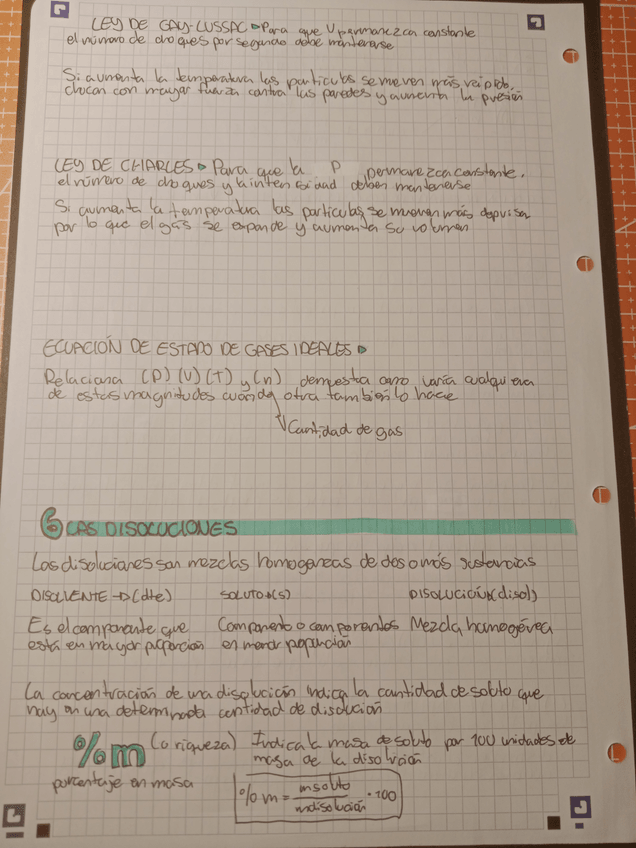 LEY DE GAY-LUSSAC ▸ Para que V permanezca constante
el número de choques por segundo debe mantenerse
Si aumenta la temperatura las partículas se mueven más rápido,
chocan con mayor fuerza contra las paredes y aumenta la presión
LEY DE CHARLES ▸ Para que la P permanezca constante,
el número de choques y la intensidad deben mantenerse
Si aumenta la temperatura las partículas se mueven más deprisa
por lo que el gas se expande y aumenta su volumen
ECUACIÓN DE ESTADO DE GASES IDEALES ▸
Relaciona (P) (V) (T) y (n) demuestra como varía cualquiera
de estas magnitudes cuando otra también lo hace
Cantidad de gas
6 LAS DISOLUCIONES
Las disoluciones son mezclas homogéneas de dos o más sustancias
DISOLVENTE → (dte) SOLUTO → (s) DISOLUCIÓN → (disol)
Es el componente que Componente o componentes Mezcla homogénea
está en mayor proporción en menor proporción
La concentración de una disolución indica la cantidad de soluto que
hay en una determinada cantidad de disolución
%m (o riqueza) Indica la masa de soluto por 100 unidades de
masa de la disolución
porcentaje en masa
%m = msoluto / mdisolución · 100